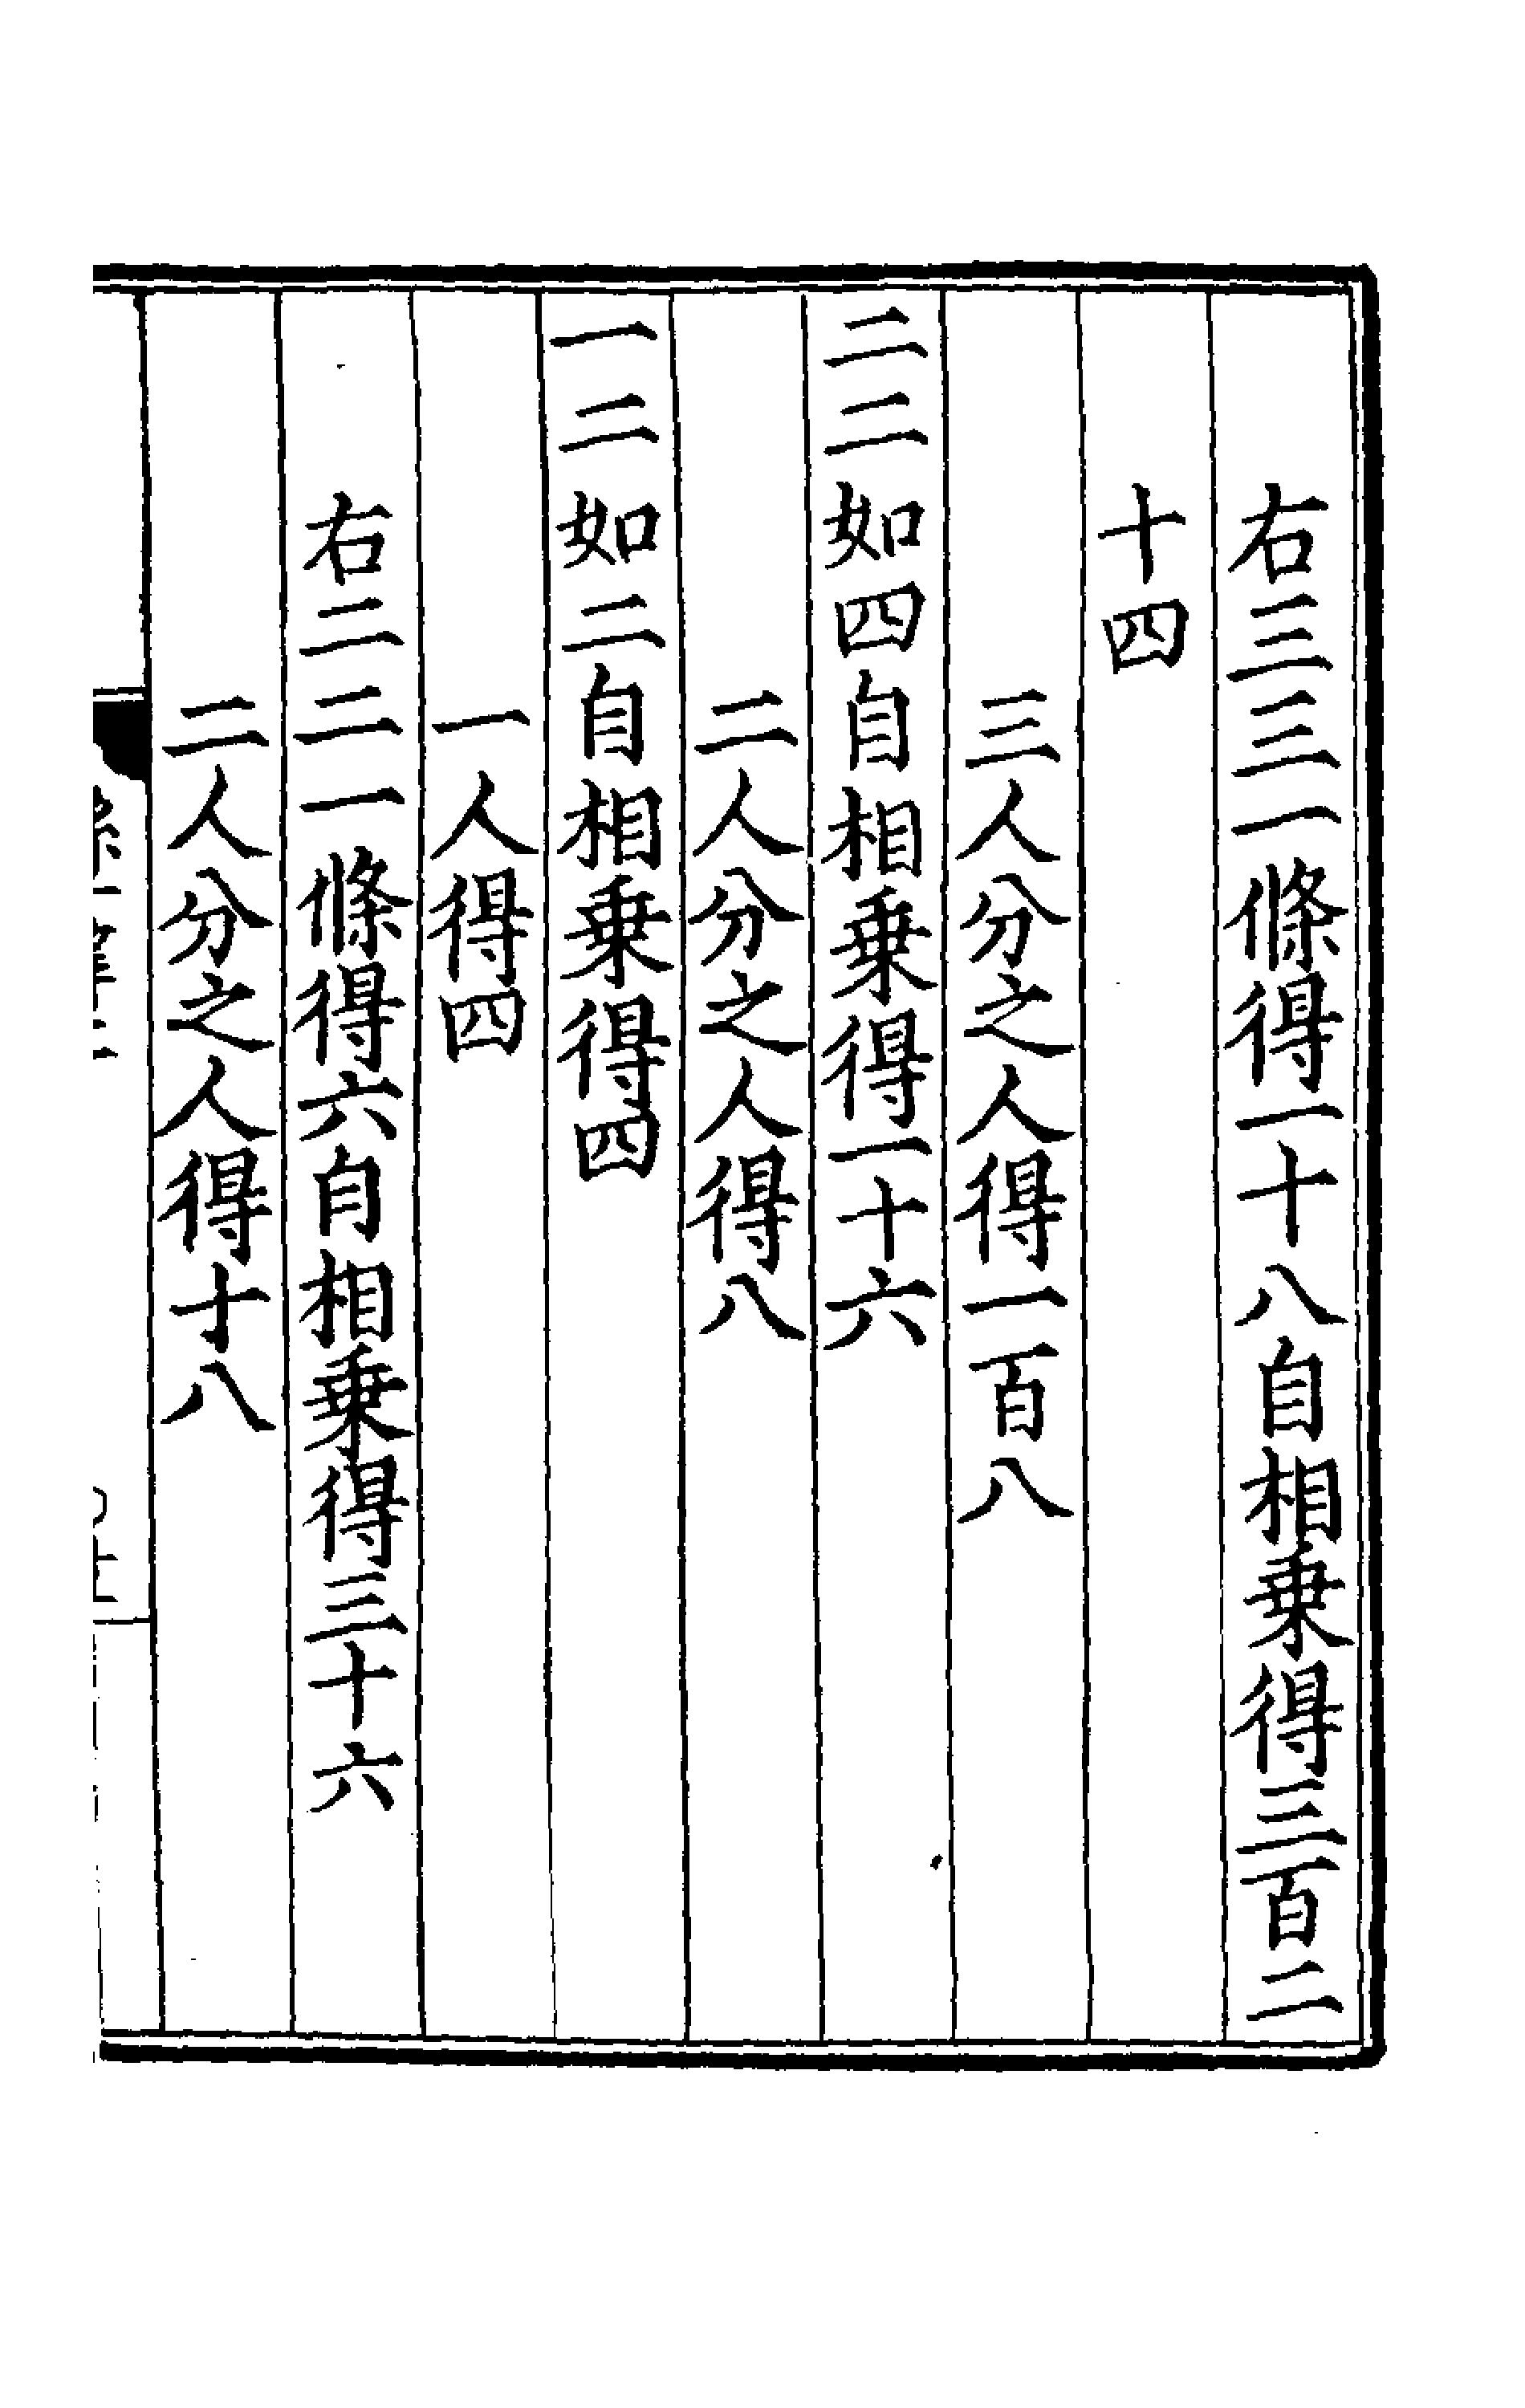 右三三一條得一十八自相乗得三百二
十四
三人分之人得一百八
二二如四自相乗得一十六
二人分之人得八
一二如二自相乗得四
一人得四
右二二一條得六自相乗得三十六
二人分之人得十八